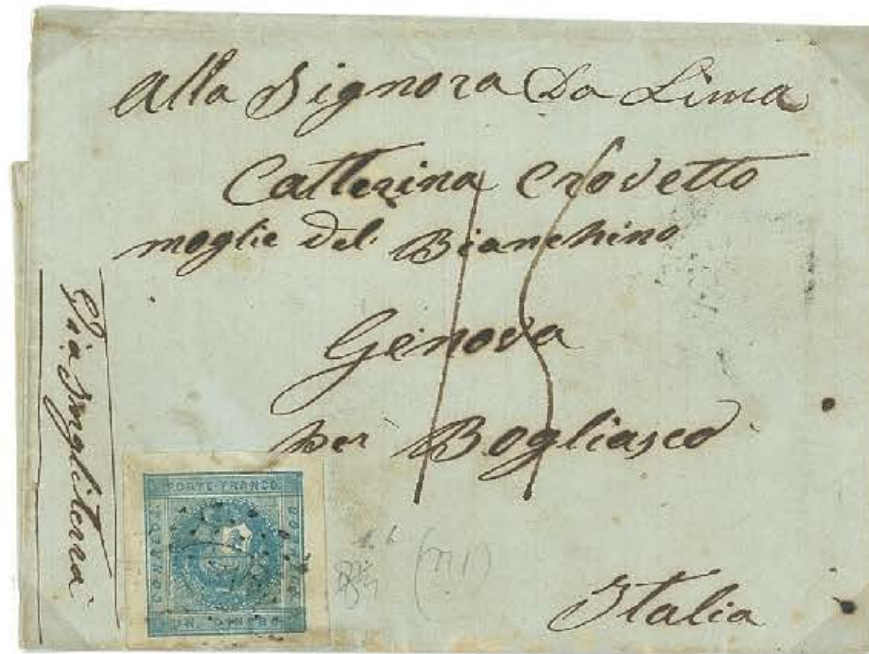 Alla Signora Da Lima
Catterina Crovetto
moglie del Bianchino
Genova
per Bogliasco
Italia
Via Inghilterra
15
PORTE FRANCO
CORREOS
UN DINERO
(n1)